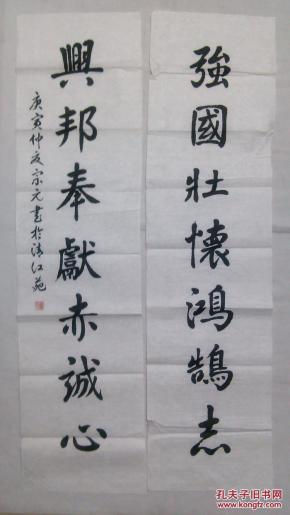 強國壯懷鴻鵠志
興邦奉獻赤誠心
庚寅仲夏宗元書於清江苑
孔夫子旧书网